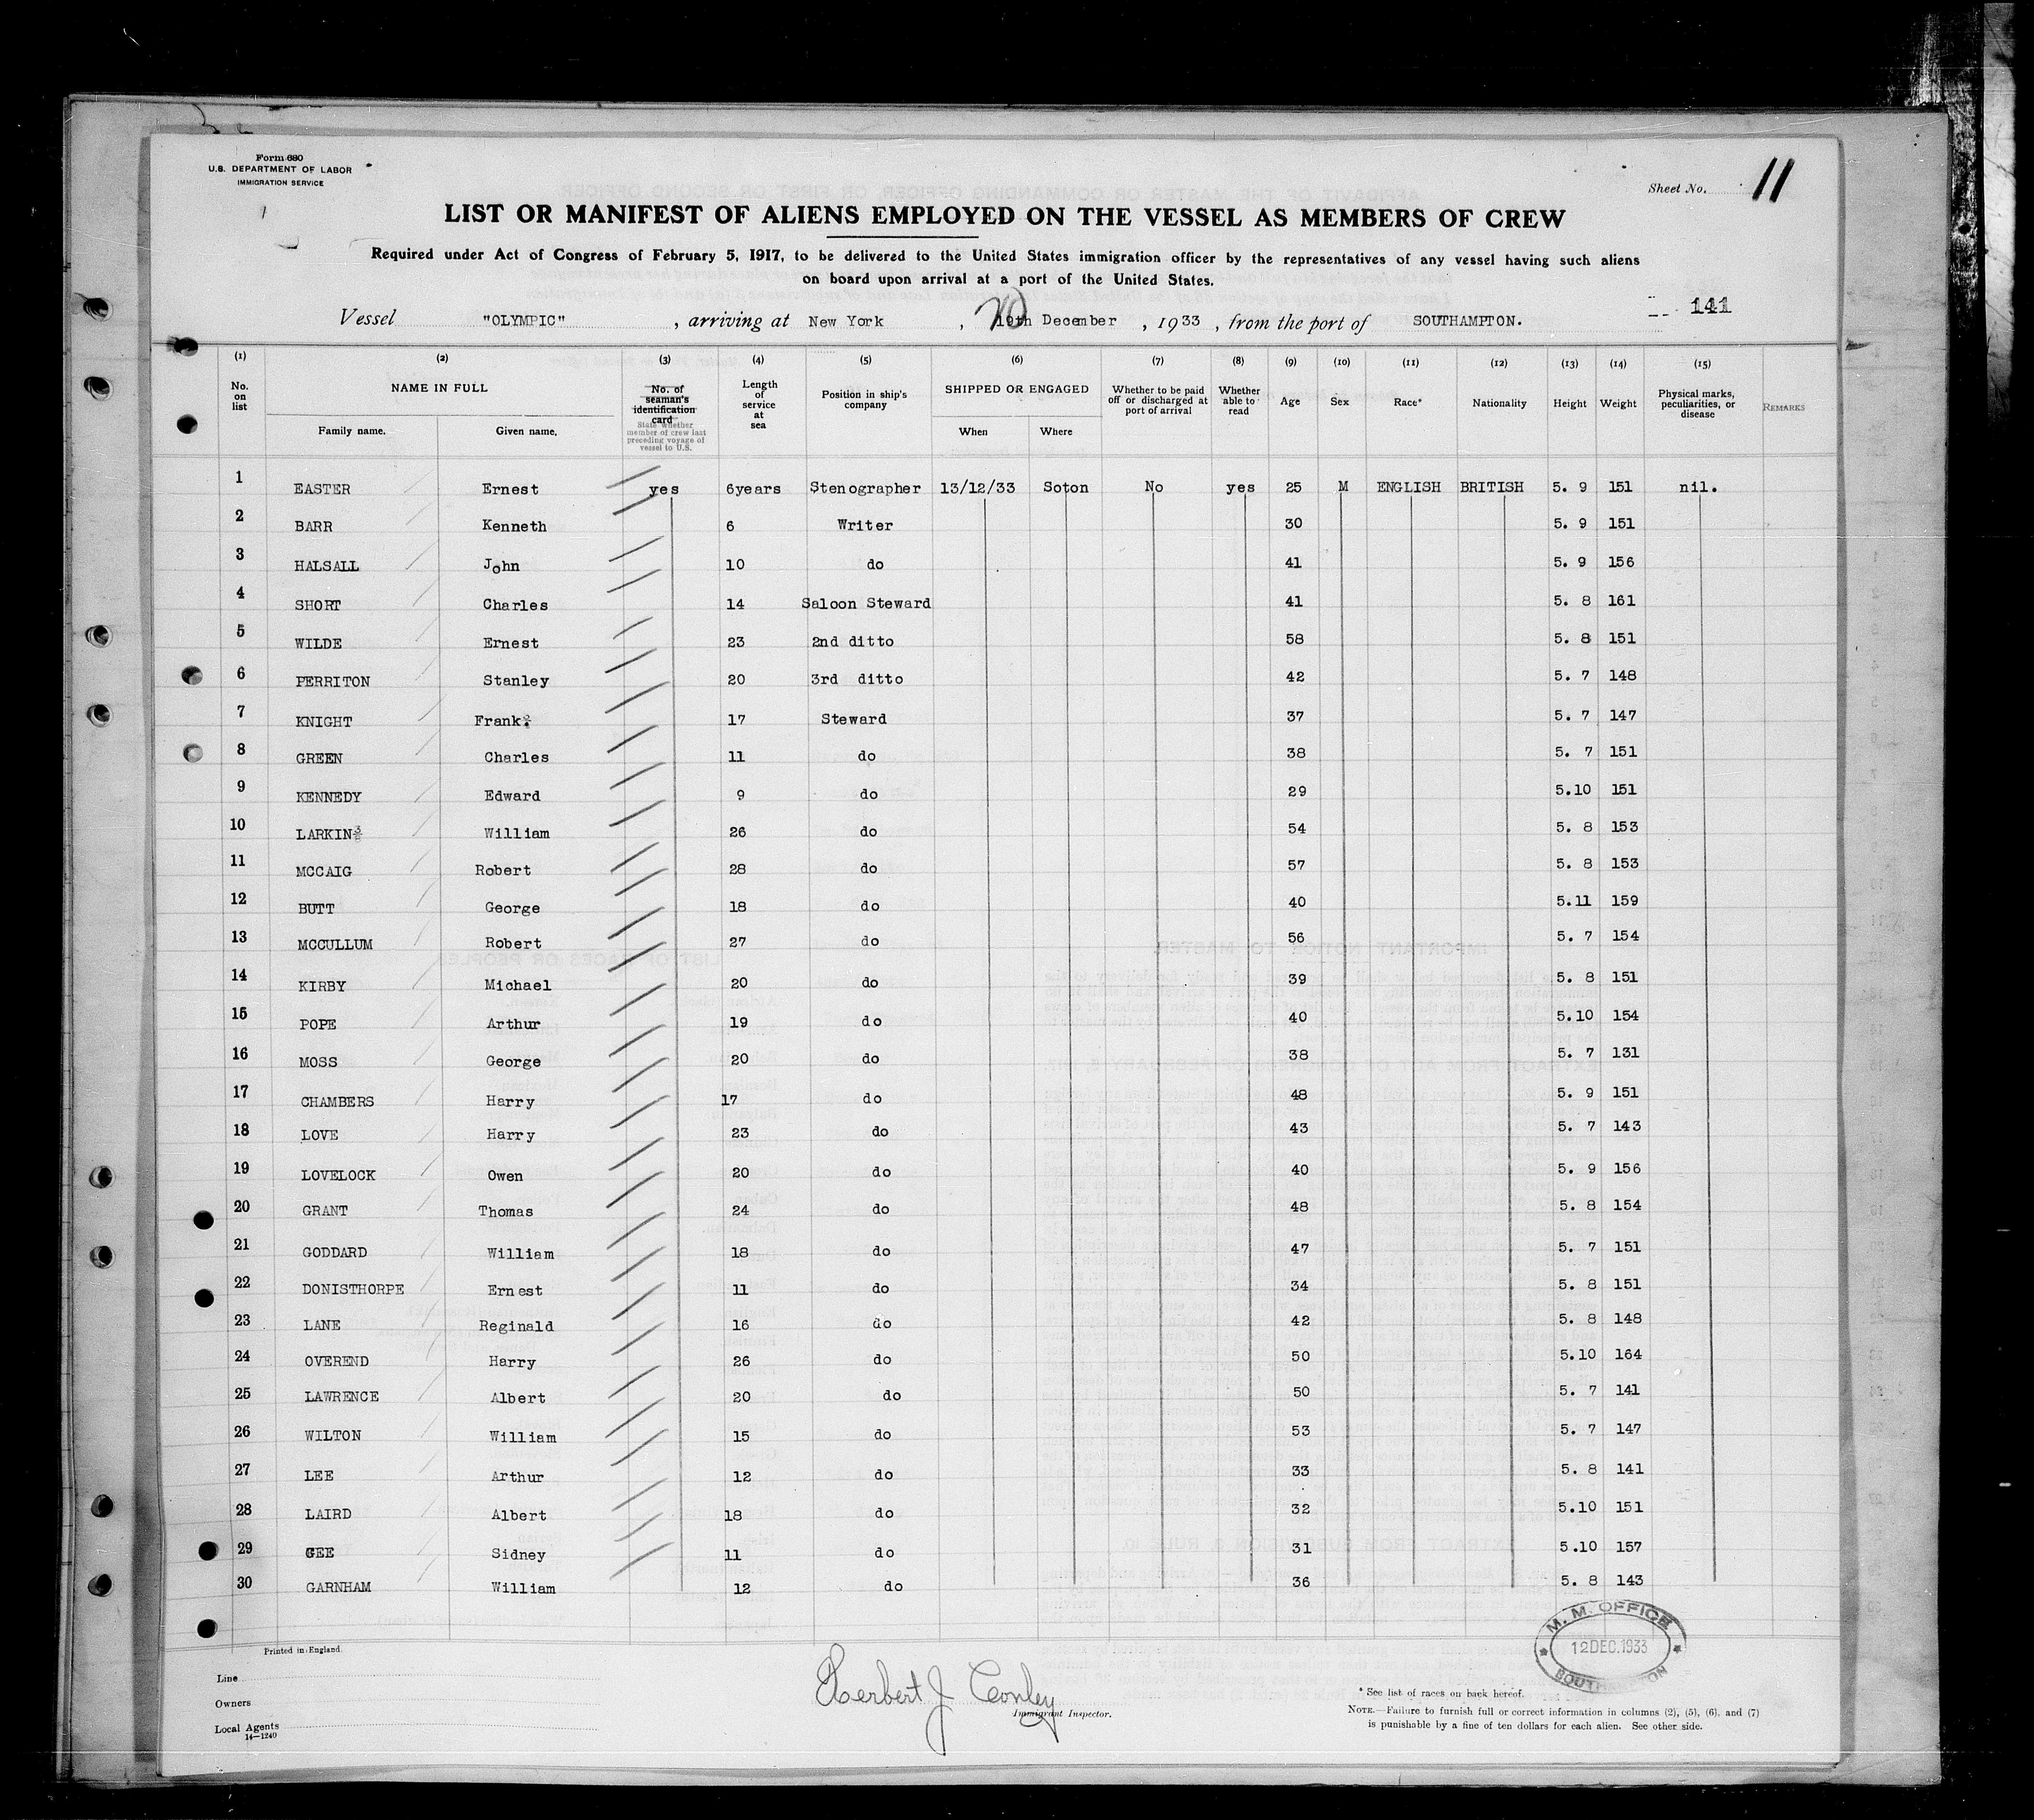 Form 680
U.S. DEPARTMENT OF LABOR
IMMIGRATION SERVICE
Sheet No. 11
LIST OR MANIFEST OF ALIENS EMPLOYED ON THE VESSEL AS MEMBERS OF CREW
Required under Act of Congress of February 5, 1917, to be delivered to the United States immigration officer by the representatives of any vessel having such aliens
on board upon arrival at a port of the United States.
141
Vessel "OLYMPIC", arriving at New York, 20 19th December, 1933, from the port of SOUTHAMPTON.
(1) (2) (3) (4) (5) (6) (7) (8) (9) (10) (11) (12) (13) (14) (15)
No. on list NAME IN FULL Family name. Given name. No. of seaman's identification card State whether member of crew last preceding voyage of vessel to U.S. Length of service at sea Position in ship's company SHIPPED OR ENGAGED When Where Whether to be paid off or discharged at port of arrival Whether able to read Age Sex Race* Nationality Height Weight Physical marks, peculiarities, or disease REMARKS
1 EASTER Ernest yes 6years Stenographer 13/12/33 Soton No yes 25 M ENGLISH BRITISH 5. 9 151 nil.
2 BARR Kenneth 6 Writer 30 5. 9 151
3 HALSALL John 10 do 41 5. 9 156
4 SHORT Charles 14 Saloon Steward 41 5. 8 161
5 WILDE Ernest 23 2nd ditto 58 5. 8 151
6 PERRITON Stanley 20 3rd ditto 42 5. 7 148
7 KNIGHT Frank 17 Steward 37 5. 7 147
8 GREEN Charles 11 do 38 5. 7 151
9 KENNEDY Edward 9 do 29 5.10 151
10 LARKIN William 26 do 54 5. 8 153
11 MCCAIG Robert 28 do 57 5. 8 153
12 BUTT George 18 do 40 5.11 159
13 MCCULLUM Robert 27 do 56 5. 7 154
14 KIRBY Michael 20 do 39 5. 8 151
15 POPE Arthur 19 do 40 5.10 154
16 MOSS George 20 do 38 5. 7 131
17 CHAMBERS Harry 17 do 48 5. 9 151
18 LOVE Harry 23 do 43 5. 7 143
19 LOVELOCK Owen 20 do 40 5. 9 156
20 GRANT Thomas 24 do 48 5. 8 154
21 GODDARD William 18 do 47 5. 7 151
22 DONISTHORPE Ernest 11 do 34 5. 8 151
23 LANE Reginald 16 do 42 5. 8 148
24 OVEREND Harry 26 do 50 5.10 164
25 LAWRENCE Albert 20 do 50 5. 7 141
26 WILTON William 15 do 53 5. 7 147
27 LEE Arthur 12 do 33 5. 8 141
28 LAIRD Albert 18 do 32 5.10 151
29 GEE Sidney 11 do 31 5.10 157
30 GARNHAM William 12 do 36 5. 8 143
M. M. OFFICE
12 DEC. 1933
SOUTHAMPTON
Printed in England.
Line
Owners
Local Agents
14—1240
Herbert J Conley
Immigrant Inspector.
* See list of races on back hereof.
NOTE.—Failure to furnish full or correct information in columns (2), (5), (6), and (7)
is punishable by a fine of ten dollars for each alien. See other side.